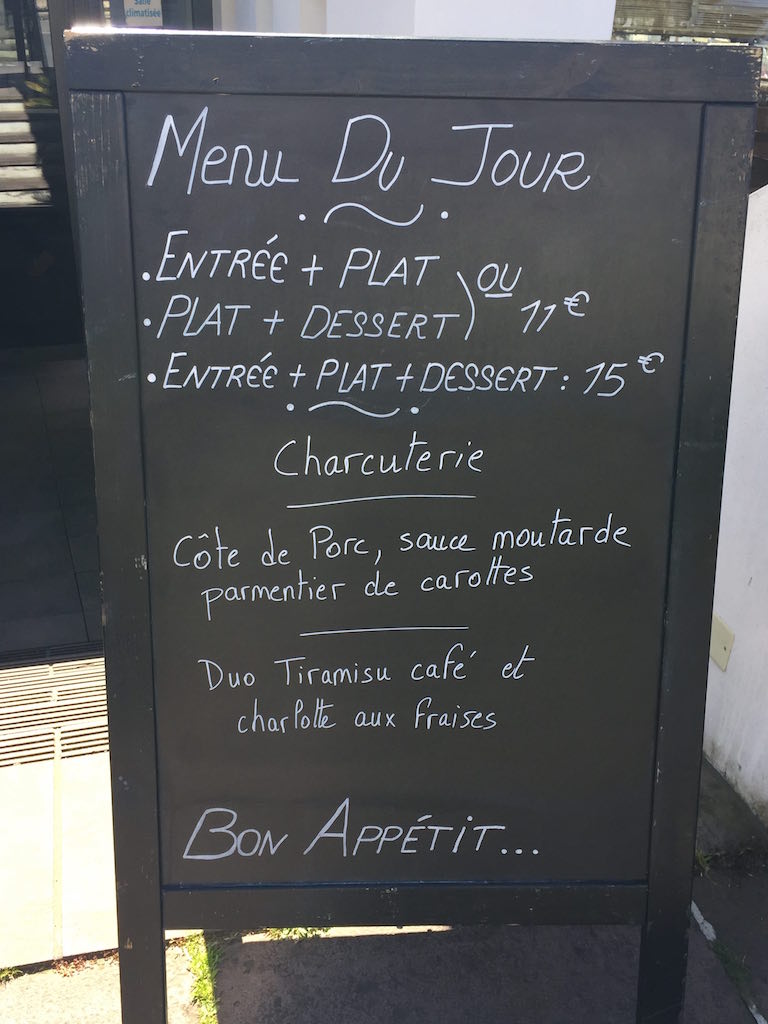 Salle
climatisée
Menu Du Jour
. Entrée + Plat
. Plat + Dessert ) ou 11€
. Entrée + Plat + Dessert : 15€
Charcuterie
Côte de Porc, sauce moutarde
parmentier de carottes
Duo Tiramisu café et
charlotte aux fraises
Bon Appétit...